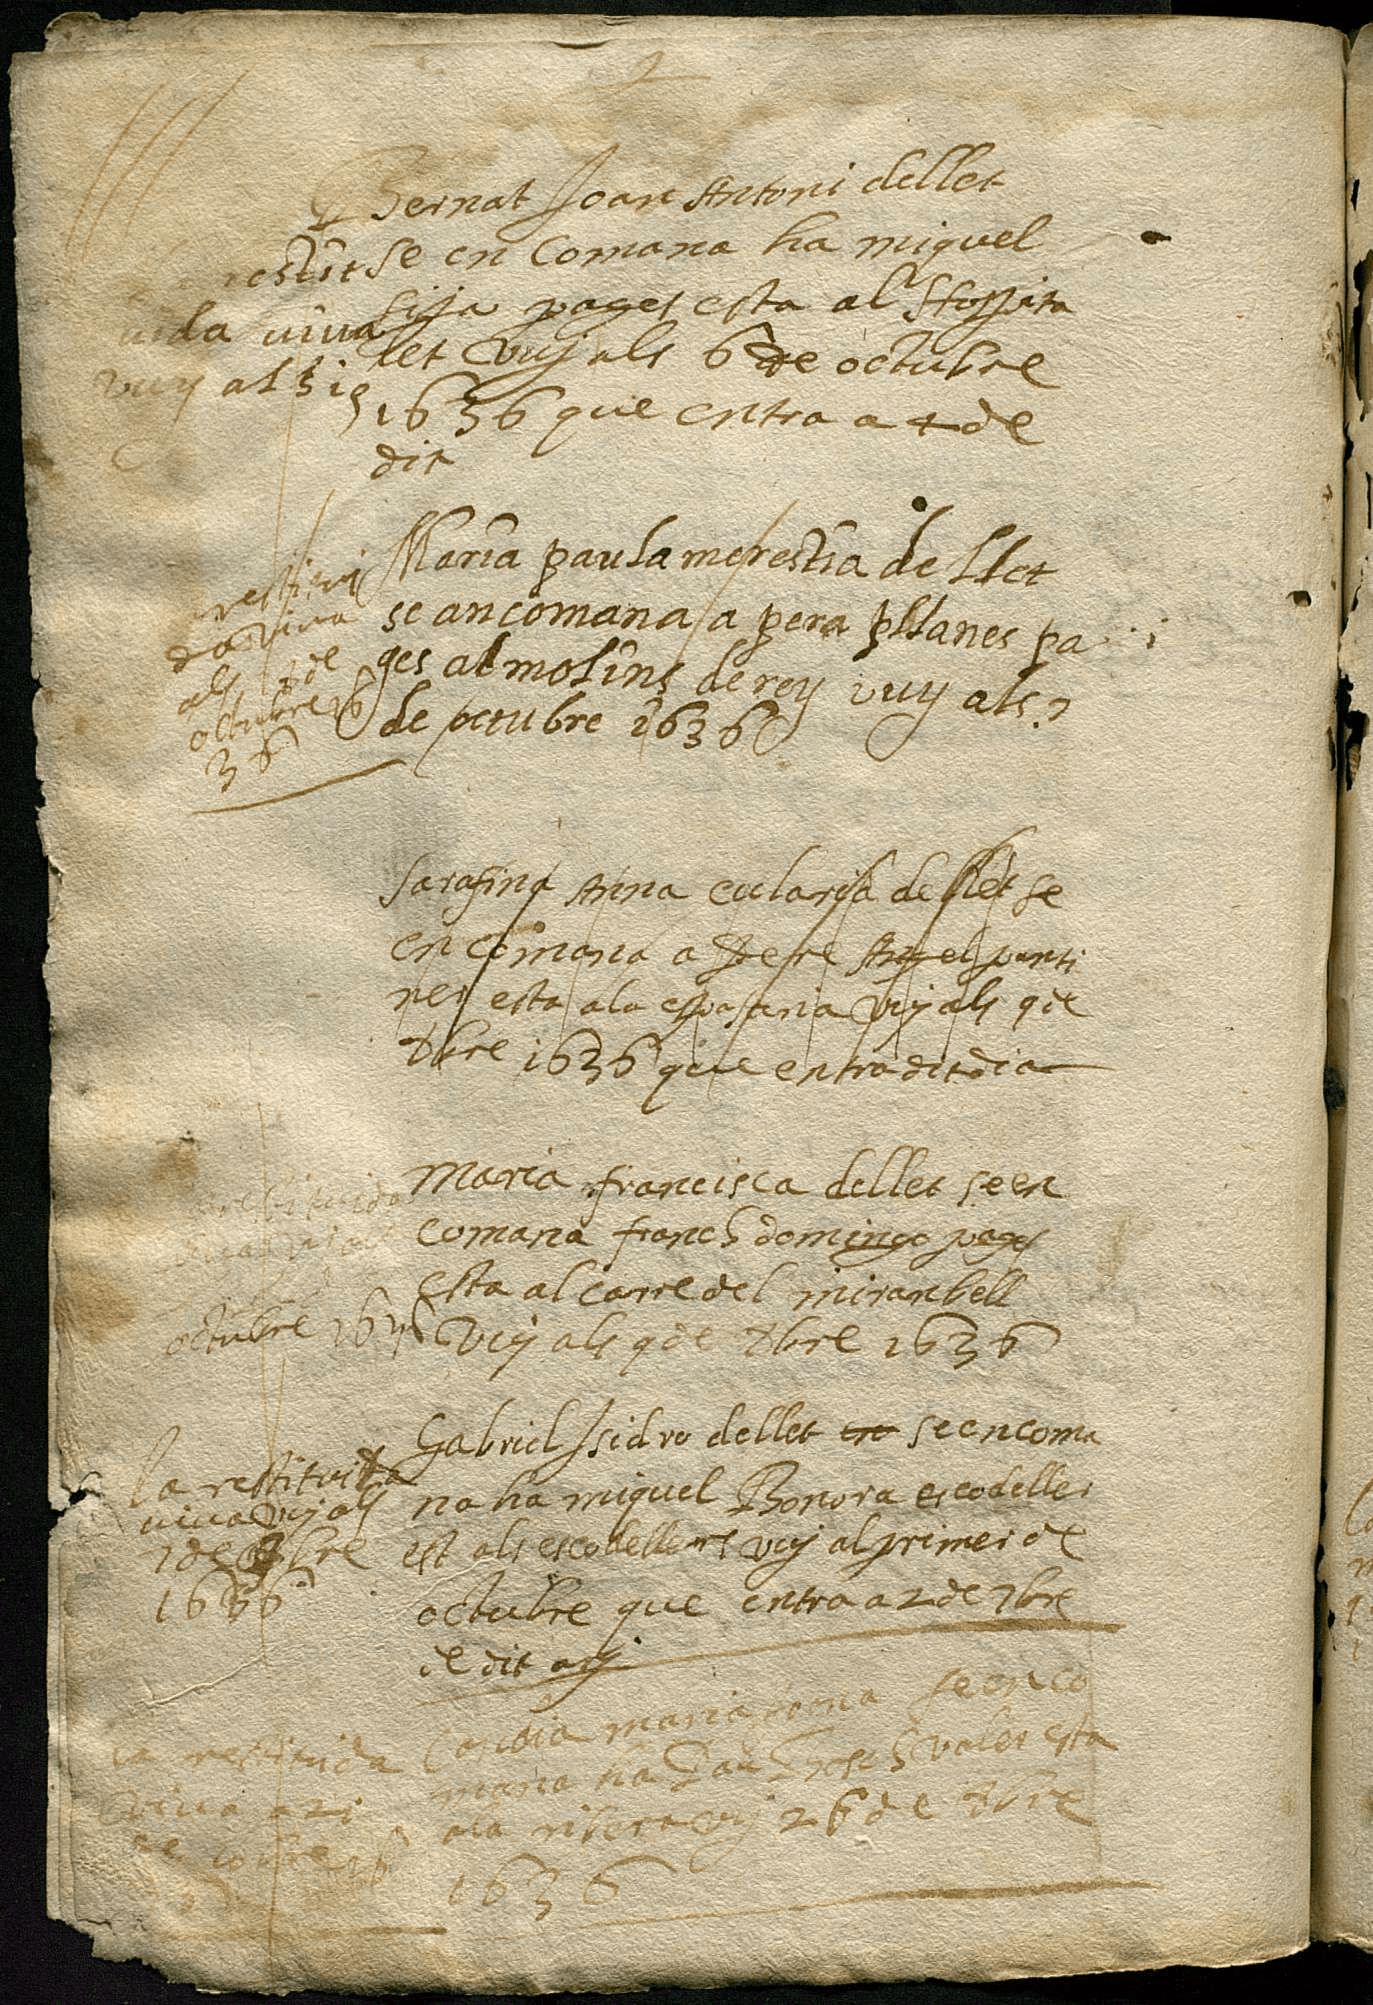 Bernat Joan Antoni dellet
se en comana ha miquel
pages esta al Hospita
let vuy als 6 de octubre
1636 que entra a 4 de
dit
restit
uida viua
vuy als 19
Maria paula merestia de llet
se ancomana a pera pllanes pa
ges al molins de rey vuy als 7
de octubre 1636
restitui
da viua
als 7 de
octubre 16
36
Sarafina Anna eularia de llet se
en comana a Pere Angel punti
rer esta a la esparteria vuy als 9 de
8bre 1636 que entra dit dia
Maria francisca dellet se en
comana franch domingo pages
esta al carre del miranbell
vuy als 9 de 8bre 1636
restituida
octubre 16
Gabriel Isidro dellet se encoma
na ha miquel Bonora escodeller
est als escodellers vuy al primer de
octubre que entra a 2 de 7bre
de dit any
la restituida
viua vuy als
7 de 8bre
1636
maria se enco
mana ha Pau valer esta
a la ribera vuy 26 de 8bre
1636
la restituida
viua a 21